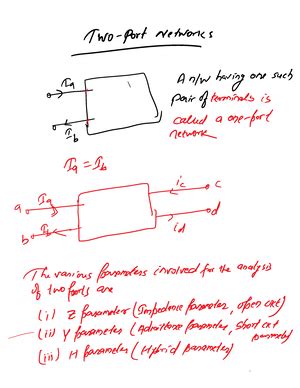 Two-port networks
Ia
A n/w having one such
pair of terminals is
called a one-port
network
Ib
Ia = Ib
ic
c
a
Ia
b
Ib
d
id
The various parameters involved for the analysis
of two ports are
(i) Z parameter (Impedence parameter, open ckt)
(ii) Y parameter (Admittance parameter, short ckt
parameter)
(iii) H parameter (Hybrid parameter)